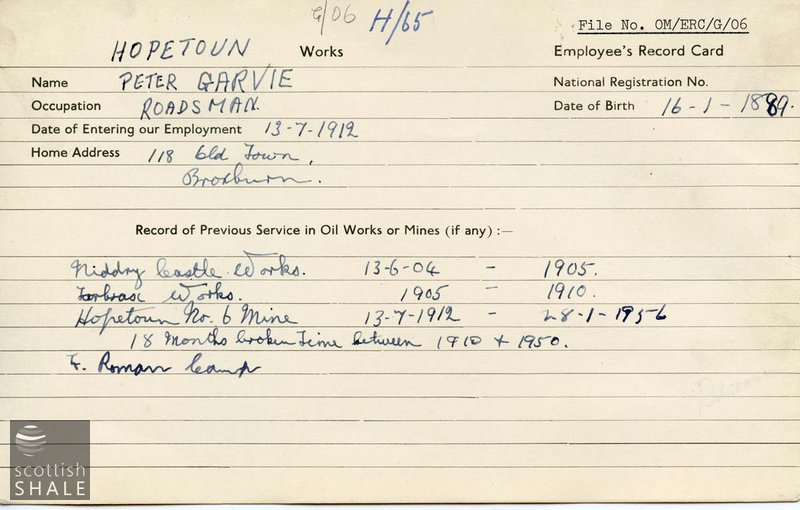 G/06 H/65
File No. OM/ERC/G/06
HOPETOUN Works Employee's Record Card
Name PETER GARVIE National Registration No.
Occupation ROADSMAN. Date of Birth 16-1-1889.
Date of Entering our Employment 13-7-1912
Home Address 118 Old Town,
Broxburn.
Record of Previous Service in Oil Works or Mines (if any) :—
Niddry Castle Works. 13-6-04 - 1905.
Tarbrax Works. 1905 - 1910.
Hopetoun No. 6 Mine 13-7-1912 - 28-1-1956
18 Months broken Time between 1910 + 1950.
Roman Camp
scottish
SHALE